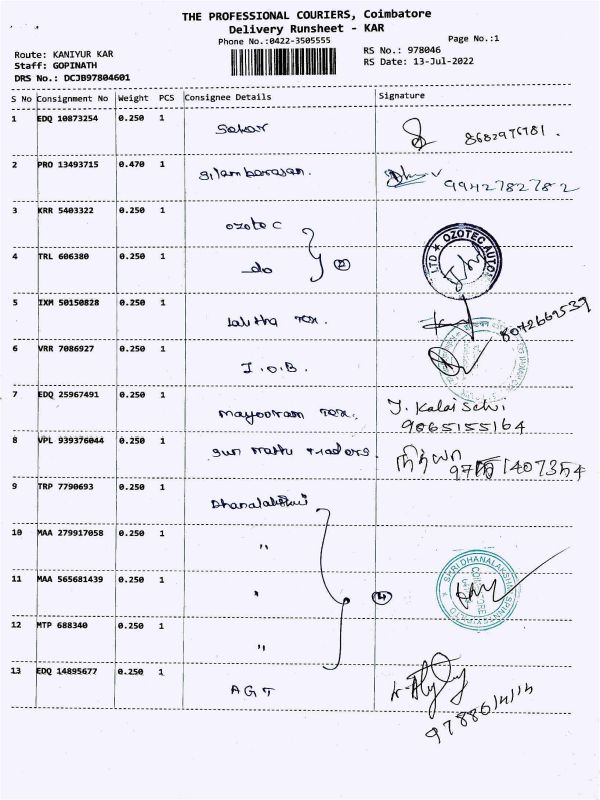 THE PROFESSIONAL COURIERS, Coimbatore
Delivery Runsheet - KAR
Phone No.:0422-3505555
Page No.:1
Route: KANIYUR KAR
Staff: GOPINATH
DRS No.: DCJB97804601
RS No.: 978046
RS Date: 13-Jul-2022
S No Consignment No Weight PCS Consignee Details Signature
1 EDQ 10873254 0.250 1 Sekar 8682976981.
2 PRO 13493715 0.470 1 Silambarasan. 9942782782
3 KRR 5403322 0.250 1 ozotec
4 TRL 606380 0.250 1 -do 2 LTD ★ OZOTEC AUTO
5 IXM 50150828 0.250 1 Lalitha Tex. 8072669539
6 VRR 7086927 0.250 1 I.O.B.
7 EDQ 25967491 0.250 1 Mayooram Tex. J. Kalai Selvi
9865155164
8 VPL 939376044 0.250 1 Sun Mathu Traders. நித்யா
1407354
9 TRP 7790693 0.250 1 Dhanalakshmi
10 MAA 279917058 0.250 1 "
11 MAA 565681439 0.250 1 " 4 SHRI DHANALAKSHMI SPINTEX
12 MTP 688340 0.250 1 "
13 EDQ 14895677 0.250 1 AGT
9788614114